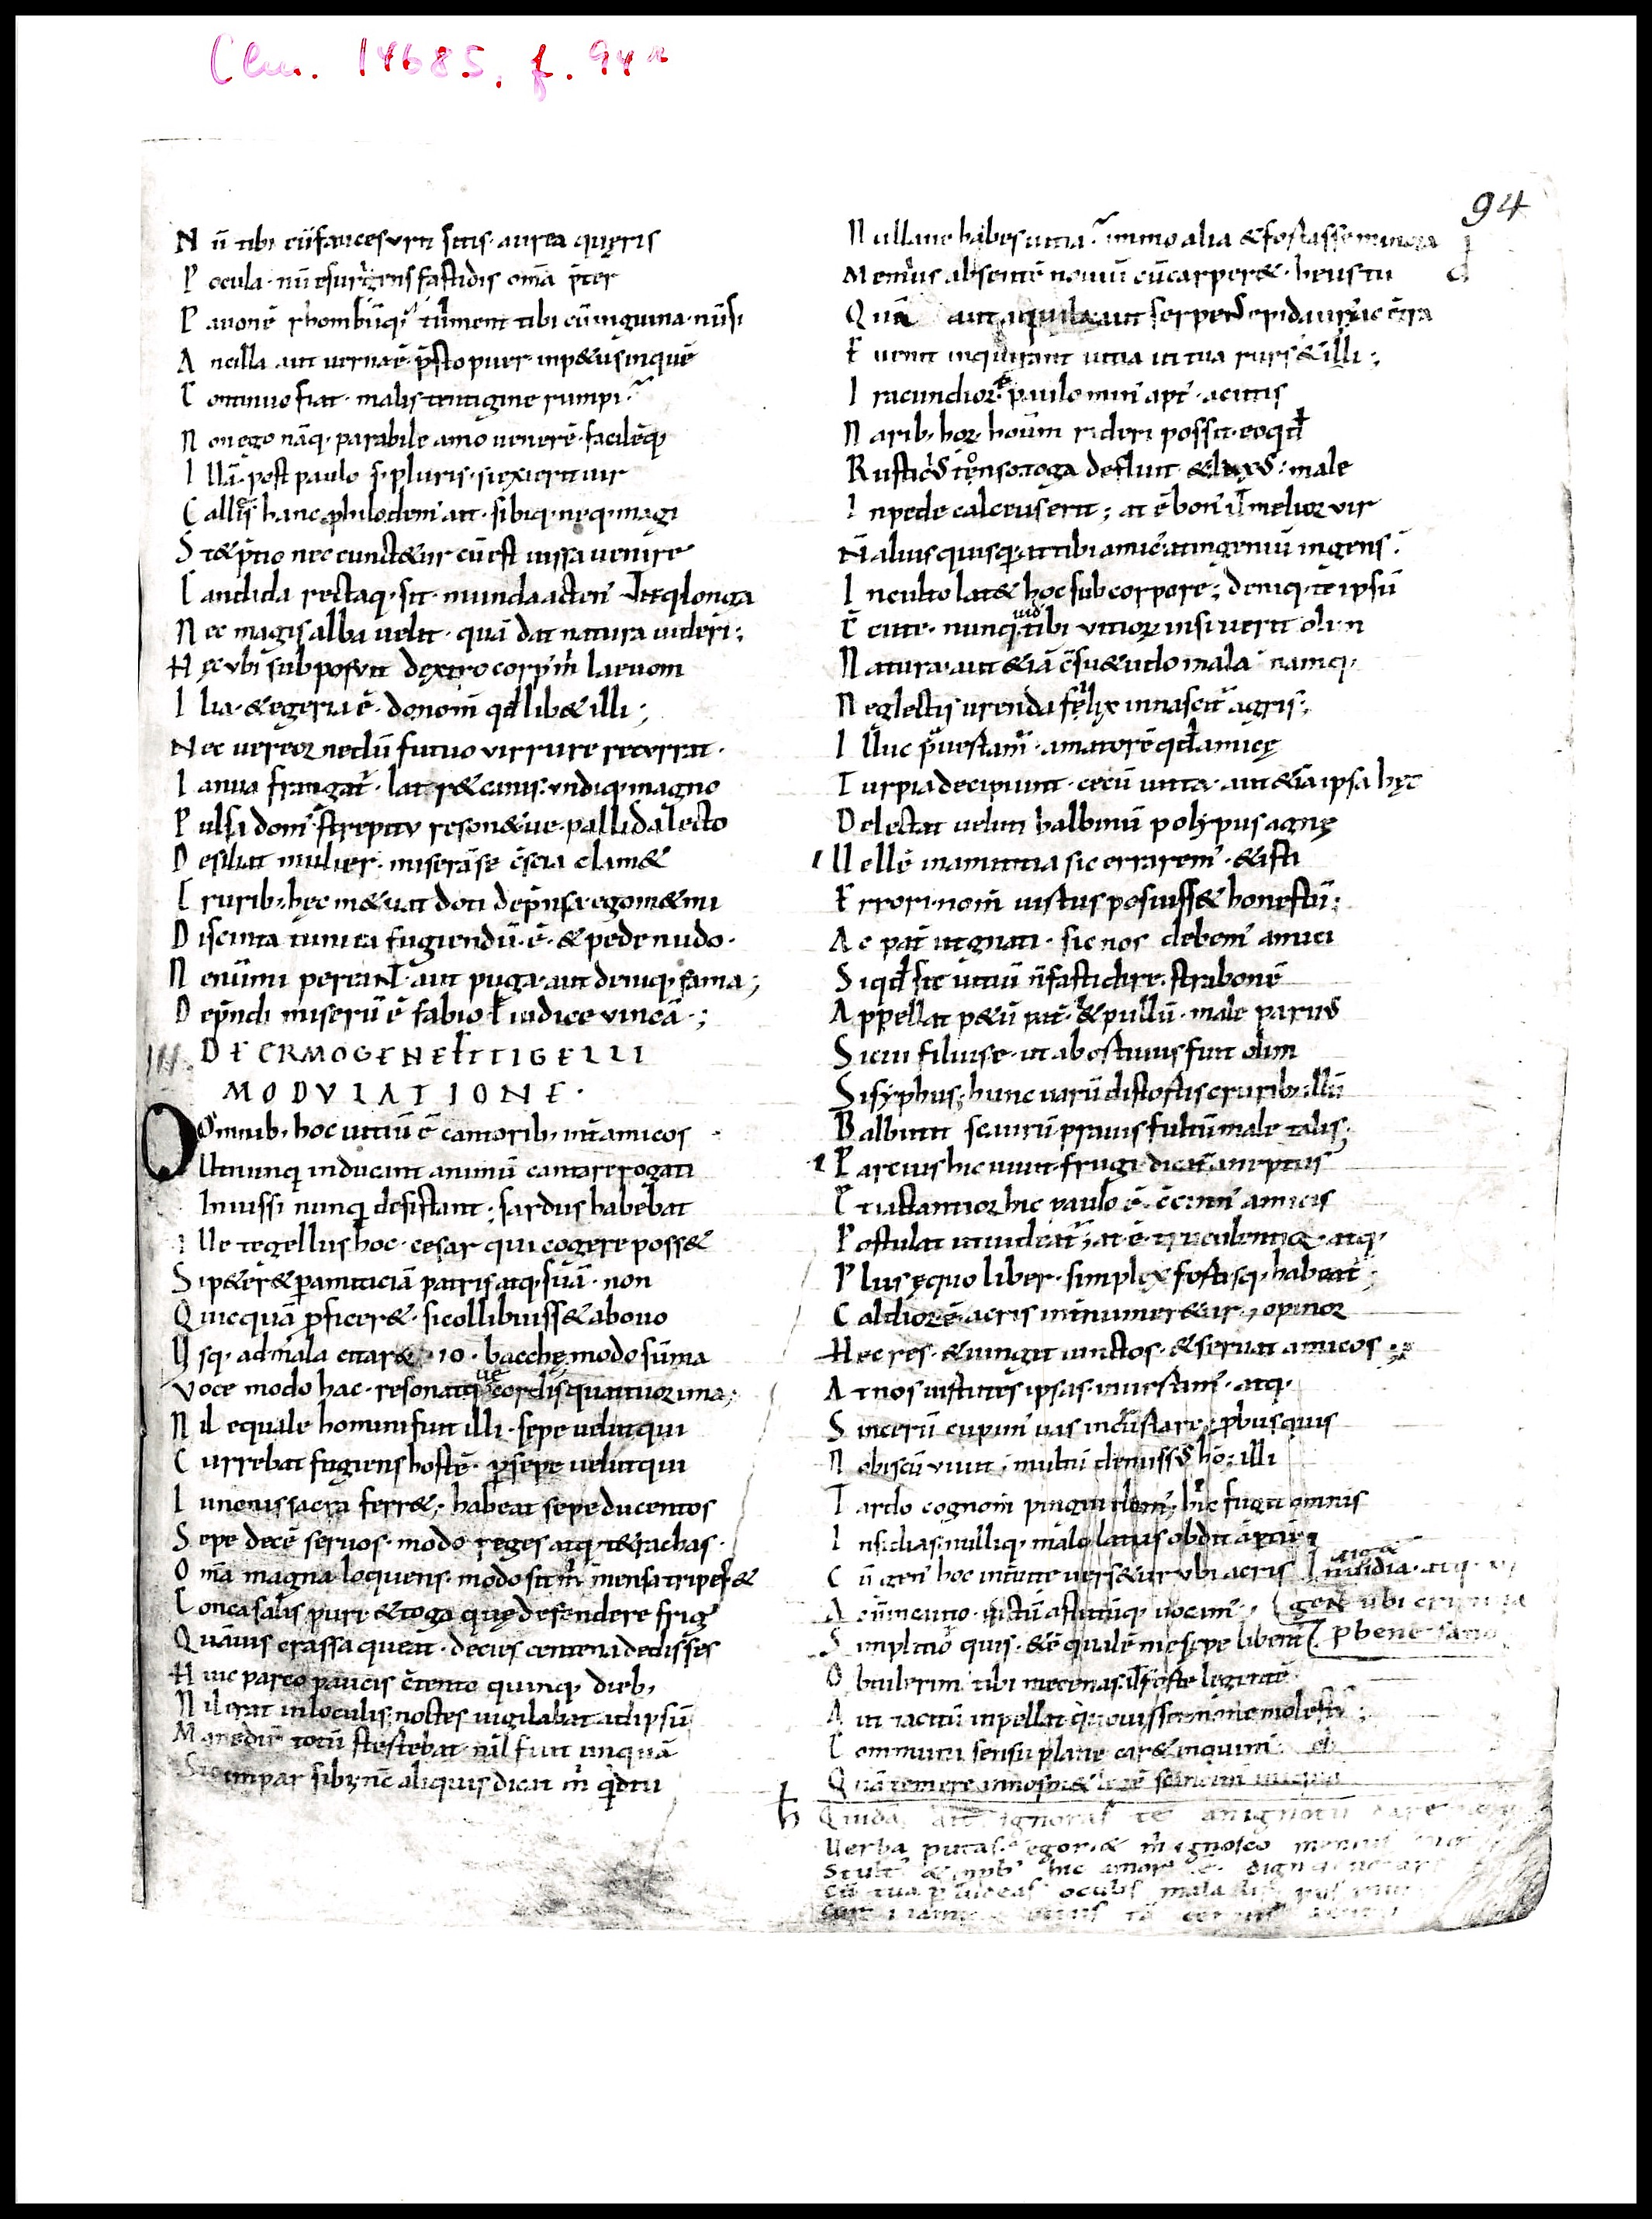 Clm. 14685, f. 94r
94
N ū tibi cū fauces urit sitis · aurea quęris
P ocula · nū esuriens fastidis om̄a p̄ter
P auonē rhombūq; tument tibi cū inguina · nū si
A ncilla aut uerna ē p̄sto puer inp&us inquē
C ontinuo fiat · malis tentigine rumpi
N on ego nāq; parabile amo uenerē · facilēq;
I llā · post paulo s; pluris · si exierit uir
C allis hanc philodem̄ ait · sibi q; neq; magi
S t& p̄tio nec cunct&ur cū est iussa uenire
C andida rectaq; sit · munda acten̄ longa
N ec magis alba uelit · quā dat natura uideri ;
H ęc ubi subposuit dextro corp̄ m̄ laeuom
I lia · & egeria ē · do nom̄ qđ lib& illi ;
N ec uereor ne dū futuo vir rure recurrat ·
I anua frangat̄ · latr& canis · undiq; magno
P ulsa dom̄ strepitu reson& ue · pallida lecto
D esiliat mulier · miserā se c̄scia clam&
C rurib; hęc m&uat doti dep̄nsa egom& mi
D iscinta tunica fugiendū · ē · & pede nudo ·
N e nūmi pereant · aut puga · aut deniq; fama ;
D ep̄ndi miserū ē fabio ł iudice vincā · ;
III.
DE ERMOGENE TIGELLI
MODVLATIONE ·
Omnib; hoc uitiū ē cantorib; int̄ amicos
Ut nunq̄ inducant animū cantare rogati
Iniussi nunq̄ desistant ; sardus habebat
I lle tegellius hoc · cesar qui cogere poss&
S i p&er& p amiticiā patris atq; suā · non
Q uicquā p̄ficer& · si collibuiss& ab ouo
U sq; ad mala citar& · io · bacche modo sūma
Voce modo hac · resonat q̄ cordis quattuor ima ;
N il equale homini fuit illi · sępe uelut qui
C urrebat fugiens hostē · psepe uelut qui
I unonis sacra ferr& ; habeat sepe ducentos
S epe decē seruos · modo reges atq; t&rachas ·
O m̄a magna loquens · modo sit m̄ mensa tripes &
C onca salis puri & toga quę defendere friḡ
Q uāuis crassa queat · decies centena dedisses
H uic parco paucis c̄tento quinq; dieb;
N il erat in loculis ; noctes uigilabat ad ipsū
M ane diē totū stertebat nil fuit unquā
Sic impar sibi ; nc̄ aliquis dicat m̄ qđ tu
N ullane habes uitia immo alia & fortasse minora
M enius absentē nouiū cū carper& · heus tu
Q uā aut aquila aut serpens epidaurius c̄tra
E uenit inquirant uitia ut tua rurs & illi ;
I racundior ē paulo min̄ apt̄ · acutis
N arib; hor; hoūm rideri possit · eo qđ
R usticus tonso toga defluit & laxus : male
I n pede calceus erit ; at ē bon̄ ut melior vir
N̄ alius quisq̄ · at tibi amic̄ at ingeniū ingens
I nculto lat& hoc sub corpore ; deniq; te ipsū
C̄ cute · nunq̄ tibi vitior insiuerit olim
N atura · aut &iā c̄su&udo mala namq;
N eglectis urenda felix innascit̄ agris ;
I lluc p̄uertam̄ · amatorē qđ amicę
T urpia decipiunt · cecū uitia · aut &iā ipsa hęc
D electat ueluti balbinū polypus agnę
U ellē in amicitia sic errarem̄ · & isti
E rrori · nom̄ uirtus posuiss& honestū ;
A c pat̄ ut gnati · sic nos debem̄ amici
S i qđ sit uitiū n̄ fastidire · strabonē
A ppellat p&ū pat̄ · & pullū · male paruus
S i cui filius e · ut abortiuus fuit olim
S isyphus ; hunc uarū distortis crurib; illū
B albutit scaurū prauis fultū male talis ;
P arcius hic uiuit frugi dicat̄ ineptus
E t iactantior hic paulo ē · c̄cinn̄ amicis
P ostulat ut uideat̄ ; at ē truculentior · atq;
P lus ęquo liber · simplex fortisq; habeat̄ ;
C aldior ē acris int̄ numer&ur ; opinor
H ec res · & iungit iunctos · & seruat amicos ;
A t nos uirtutes ipsas inuertim̄ · atq;
S incerū cupim̄ uas incrustare ; pbus quis
N obiscū viuit ; multū demissus ho ; illi
T ardo cognom̄ pingui dam̄ ; hic fugit omnis
I nsidias nulliq; malo latus obdit aptū
C ū gen̄ hoc int̄ uite uers&ur ubi acris inuidia · atq;
A c n̄ incauto fictū astutūq; uocam̄ ·
S implicior quis · & ē qualē me sępe libent̄ p bene sano
O btulerim tibi mecenas · ut forte legentē
A ut tacitū inpellat quouis sermone molest̄ ;
C ommuni sensu plane car& inquim̄
Q uā temere in nosm& legē
Quida ait ignoras te an ignotū dare
Uerba putas egom& m̄ ignosco menius
Stult̄ & inp̄b hic amor ē dign
Cū tua p̄uideas oculis mala